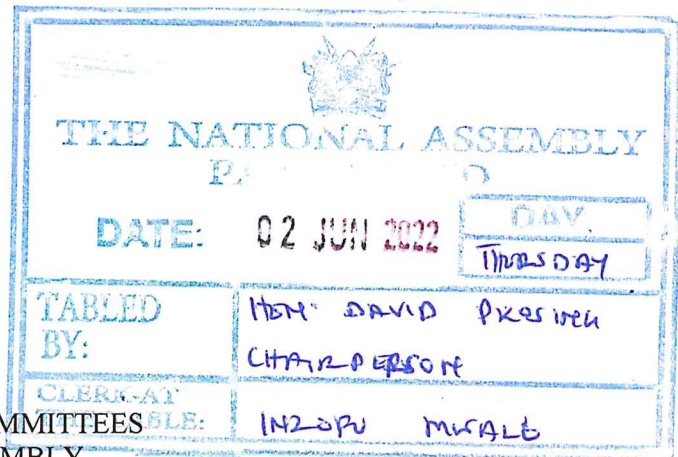 THE NATIONAL ASSEMBLY
DATE: 02 JUN 2022
DAY
THURSDAY
TABLED BY:
HON. DAVID
CHAIRPERSON
CLERK-AT
INZOFU MWALE
MMITTEES
MBLY